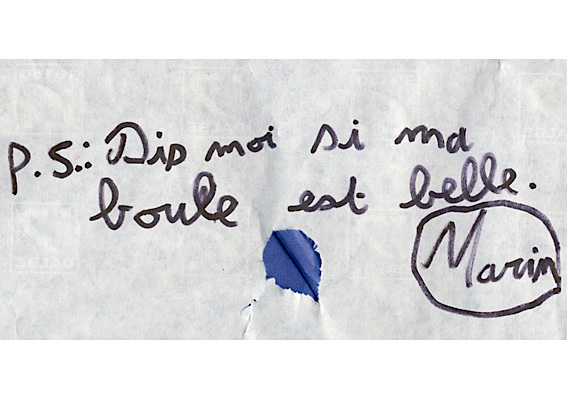 P.S.: Dis moi si ma
boule est belle.
Marin